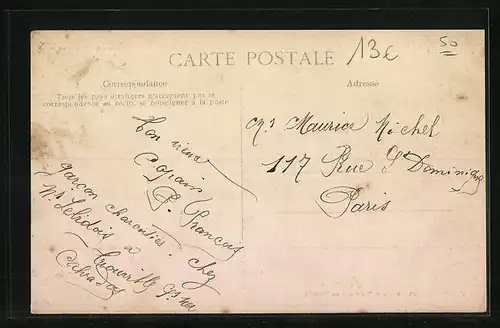 CARTE POSTALE
13€
50
Correspondance
Tous les pays étrangers n'acceptent pas la
correspondance au recto, se renseigner à la poste
Adresse
ton vieux
Copain
P. François
garçon charcutier chez
Mr Lebidois à
Trouville
Calvados
Mr Maurice Michel
117 Rue St Dominique
Paris